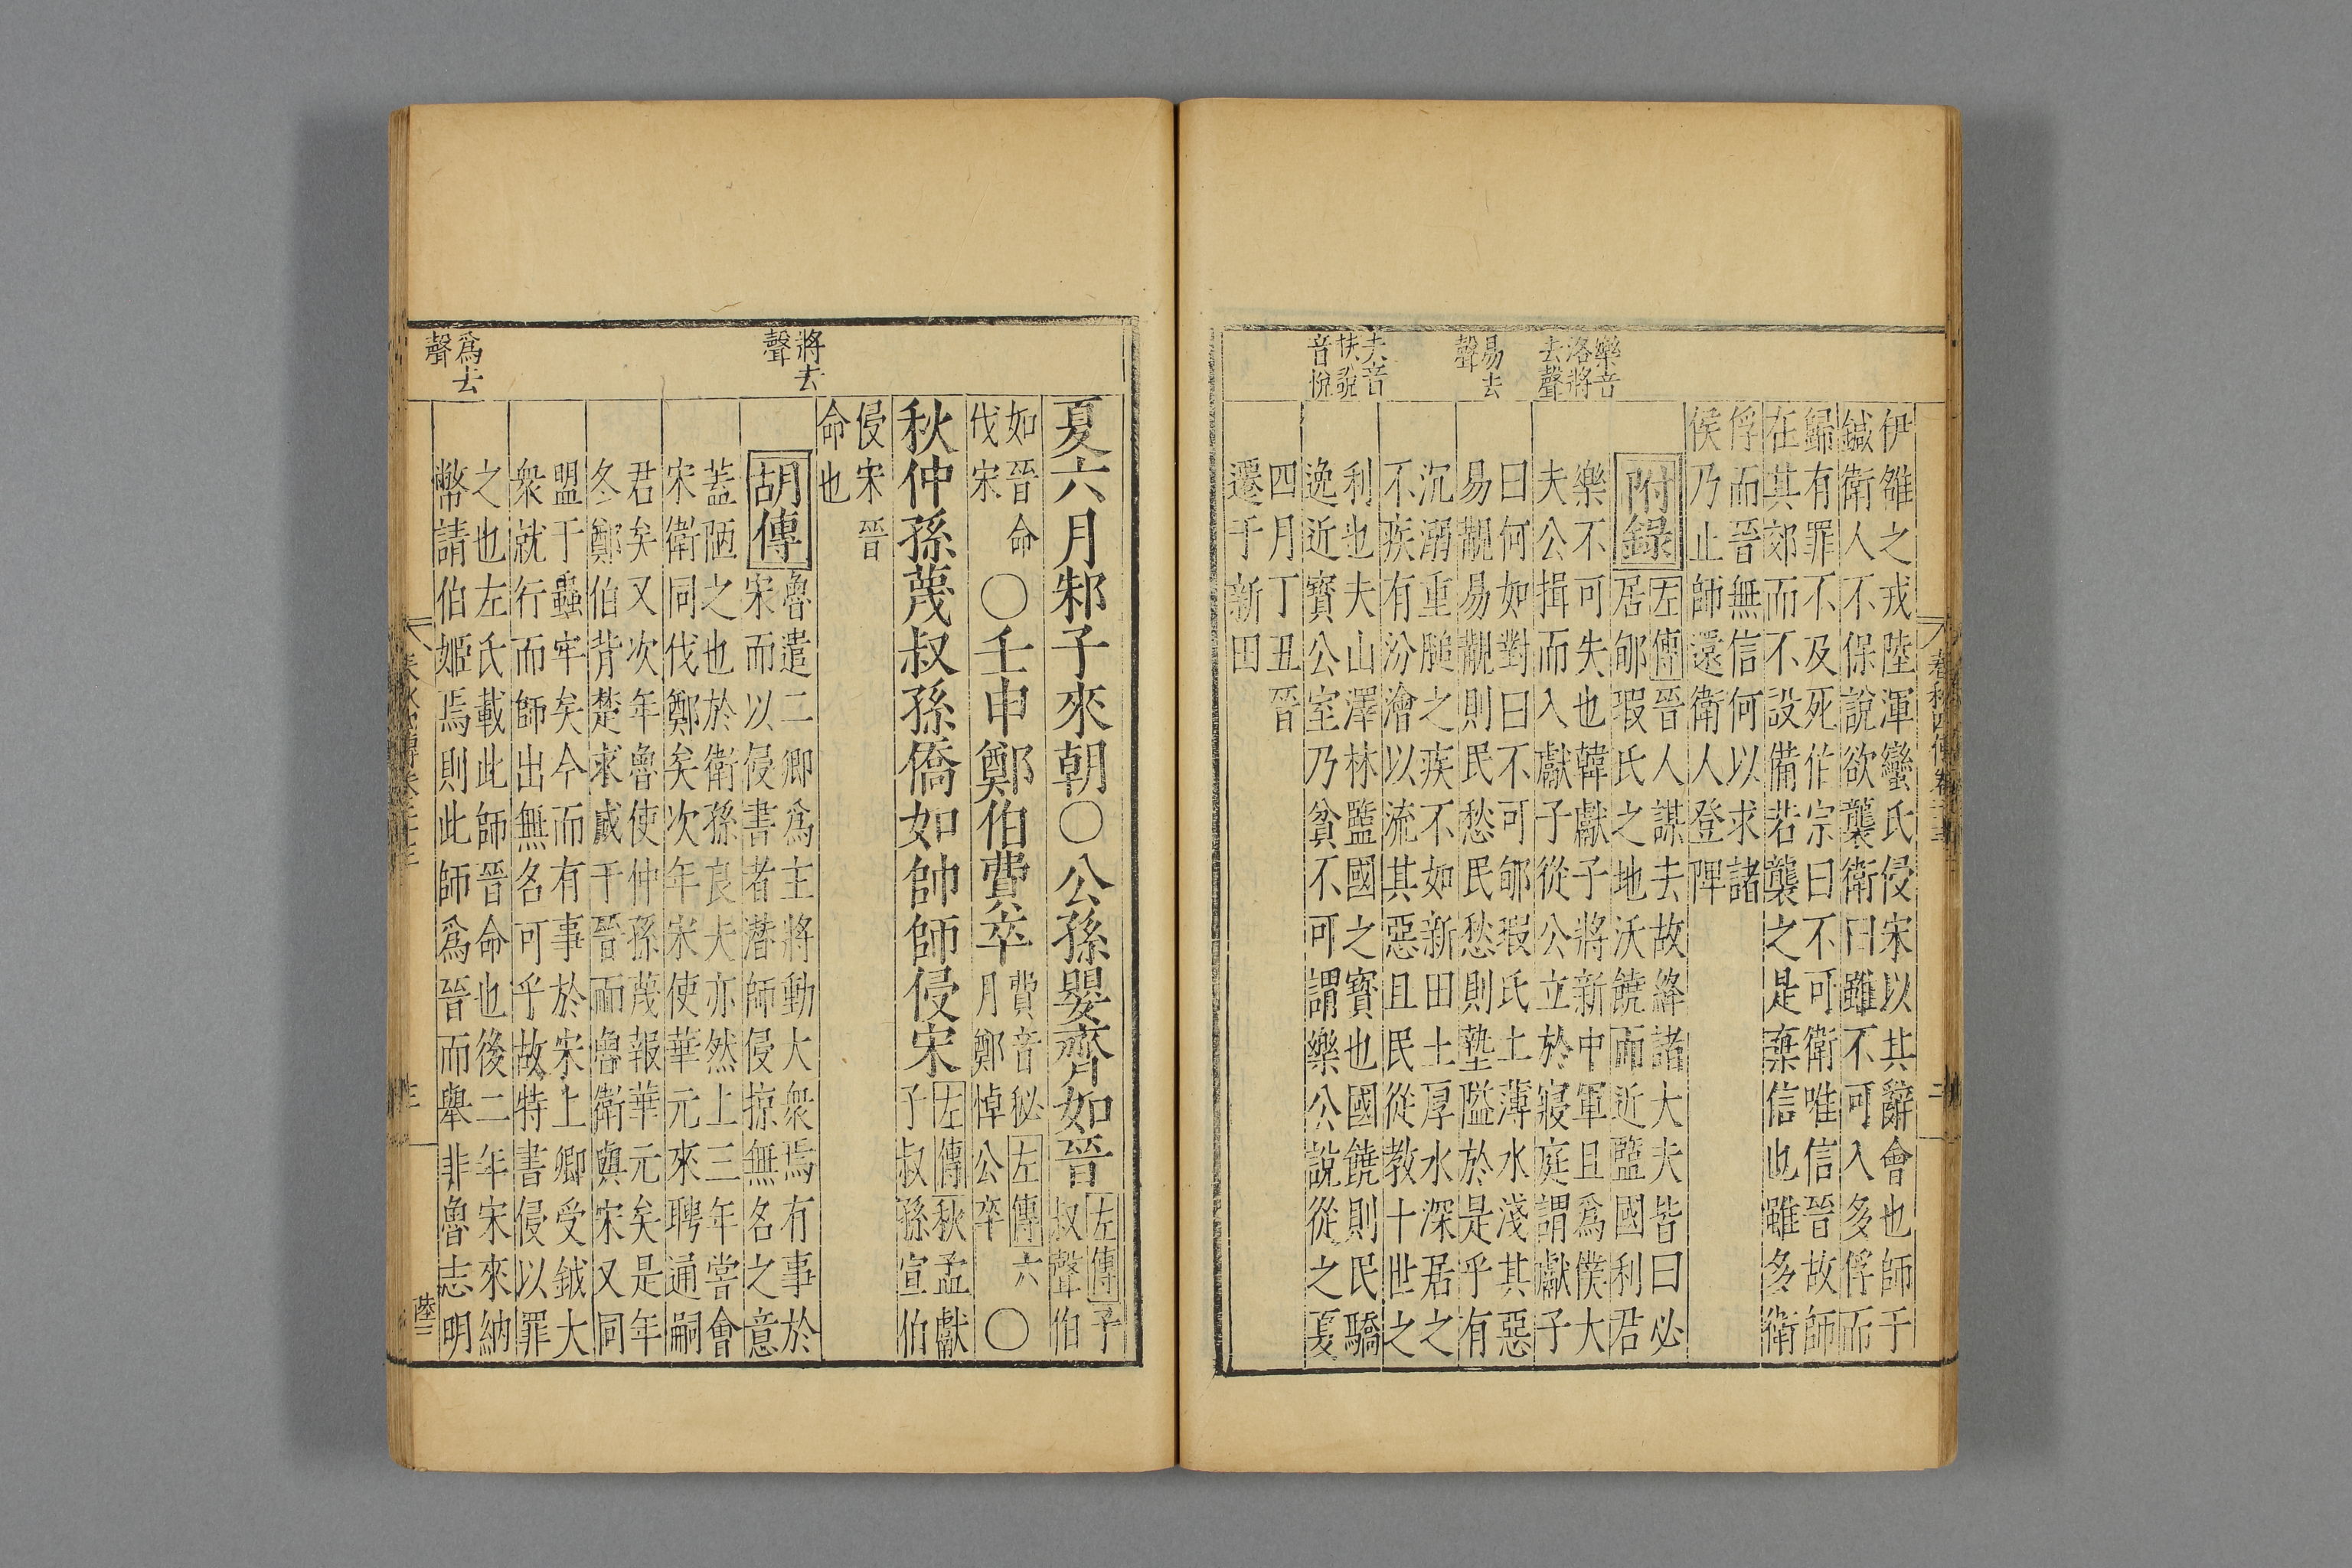 伊雒之戎陸渾蠻氏侵宋以其辭會也師于
鍼衛人不保說欲襲衛曰雖不可入多俘而
歸有罪不及死伯宗曰不可衛唯信晉故師
在其郊而不設備若襲之是棄信也雖多衛
俘而晉無信何以求諸
侯乃止師還衛人登陴
附錄
左傳晉人謀去故絳諸大夫皆曰必
居郇瑕氏之地沃饒而近盬國利君
樂不可失也韓獻子將新中軍且為僕大
夫公揖而入獻子從公立於寢庭謂獻子
曰何如對曰不可郇瑕氏土薄水淺其惡
易覯易覯則民愁民愁則墊隘於是乎有
沉溺重膇之疾不如新田土厚水深居之
不疾有汾澮以流其惡且民從教十世之
利也夫山澤林盬國之寶也國饒則民驕
逸近寶公室乃貧不可謂樂公說從之夏
四月丁丑晉
遷于新田
樂音
洛將
去聲
易去
聲
夫音
扶說
音悅
夏六月邾子來朝○公孫嬰齊如晉
左傳子
叔聲伯
如晉命
伐宋
○壬申鄭伯費卒
費音秘左傳六
月鄭悼公卒
○
秋仲孫蔑叔孫僑如帥師侵宋
左傳秋孟獻
子叔孫宣伯
侵宋晉
命也
胡傳
魯遣二卿為主將動大衆焉有事於
宋而以侵書者潛師侵掠無名之意
蓋陋之也於衛孫良夫亦然上三年嘗會
宋衛同伐鄭矣次年宋使華元來聘通嗣
君矣又次年魯使仲孫蔑報華元矣是年
冬鄭伯背楚求成于晉而魯衛與宋又同
盟于蟲牢矣今而有事於宋上卿受鉞大
衆就行而師出無名可乎故特書侵以罪
之也左氏載此師晉命也後二年宋來納
幣請伯姬焉則此師為晉而舉非魯志明
將去
聲
為去
聲